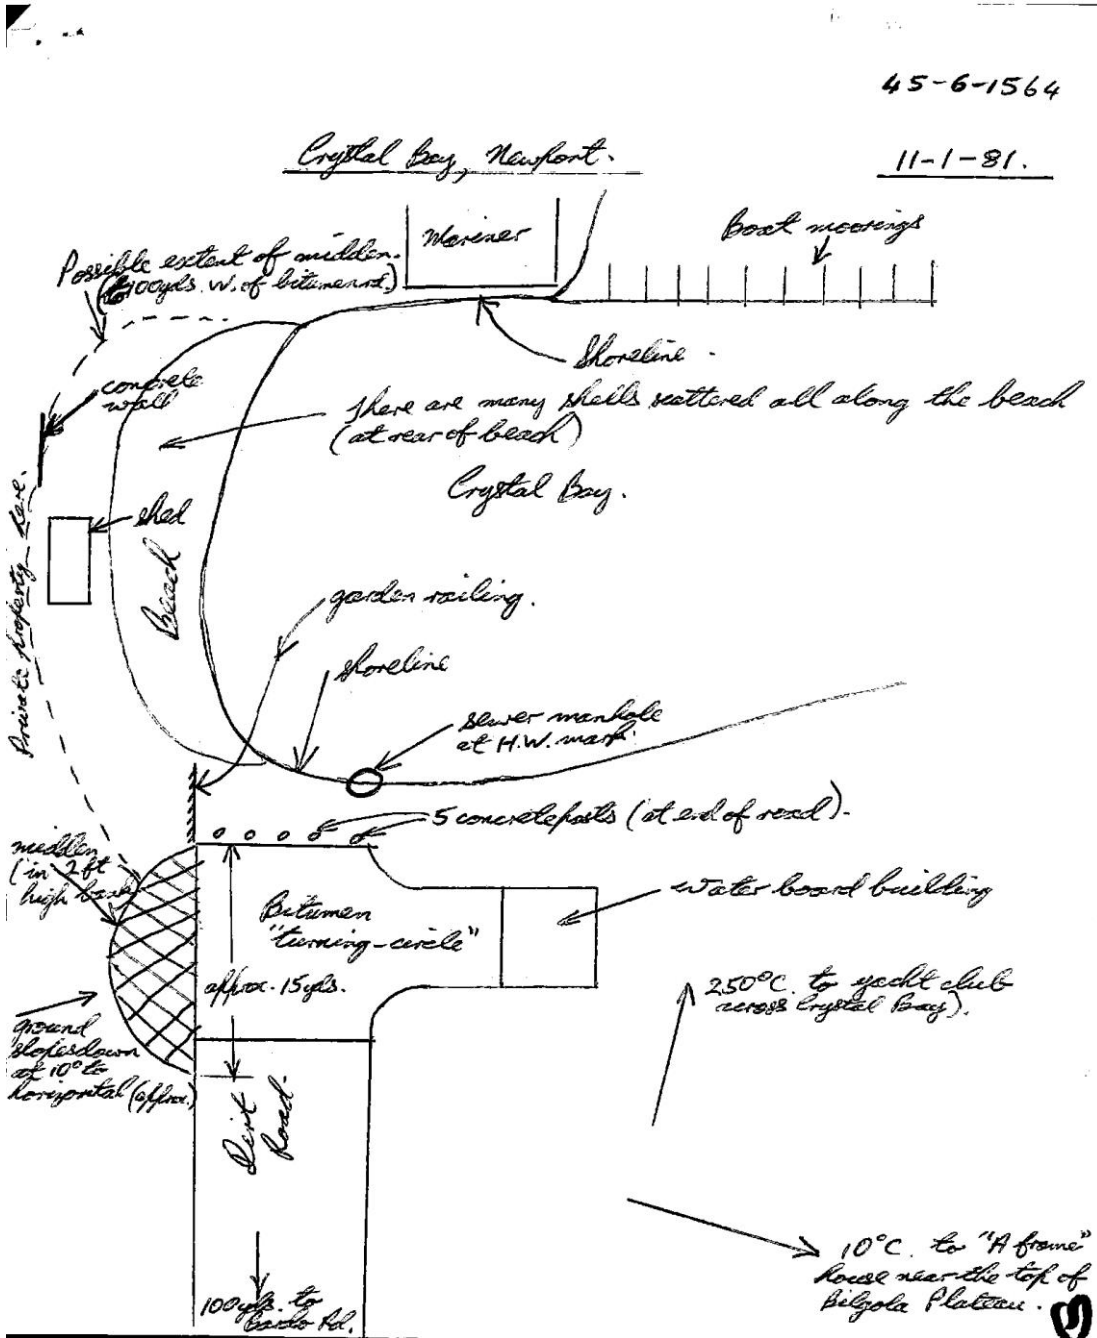 45-6-1564
Crystal Bay, Newport.
11-1-81.
Mariner
Boat moorings
Possible extent of midden.
(to 100yds. W. of bitumen rd.)
Shoreline.
concrete
wall
there are many shells scattered all along the beach
(at rear of beach)
Crystal Bay.
shed
Private property here.
Beach
garden railing.
shoreline
sewer manhole
at H.W. mark.
5 concrete posts (at end of road).
midden
(in 2ft
high bank
Bitumen
"turning-circle"
water board building
approx. 15yds.
250°C. to yacht club
across Crystal Bay).
ground
slopes down
at 10° to
horizontal (approx.)
Dirt
Road.
10°C. to "A frame"
house near the top of
Bilgola Plateau.
100yds. to
Bardo Rd.